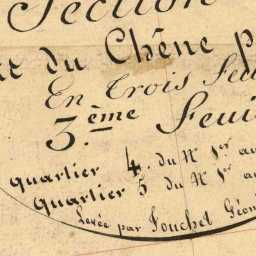 Section
du Chêne
En Trois
3.ème Feuil
quartier 4. du N° 1er au
Quartier 5 du N° 1er au
Levée par Fouchet Géom